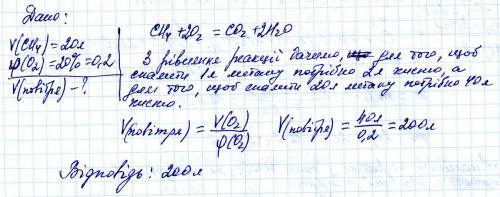 Дано:
V(CH₄)=20л
φ(O₂)=20%=0,2
V(повітря)-?
CH₄+2O₂=CO₂+2H₂O
З рівняння реакції бачимо, для того, щоб
спалити 1л метану потрібно 2л кисню, а
для того, щоб спалити 20л метану потрібно 40л
кисню.
V(повітря)=V(O₂)/φ(O₂) V(повітря)=40л/0,2=200л
Відповідь: 200л